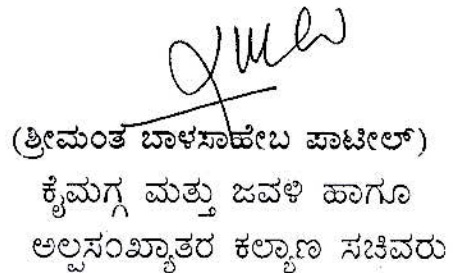 (ಶ್ರೀಮಂತ ಬಾಳಸಾಹೇಬ ಪಾಟೀಲ್)
ಕೈಮಗ್ಗ ಮತ್ತು ಜವಳಿ ಹಾಗೂ
ಅಲ್ಪಸಂಖ್ಯಾತರ ಕಲ್ಯಾಣ ಸಚಿವರು